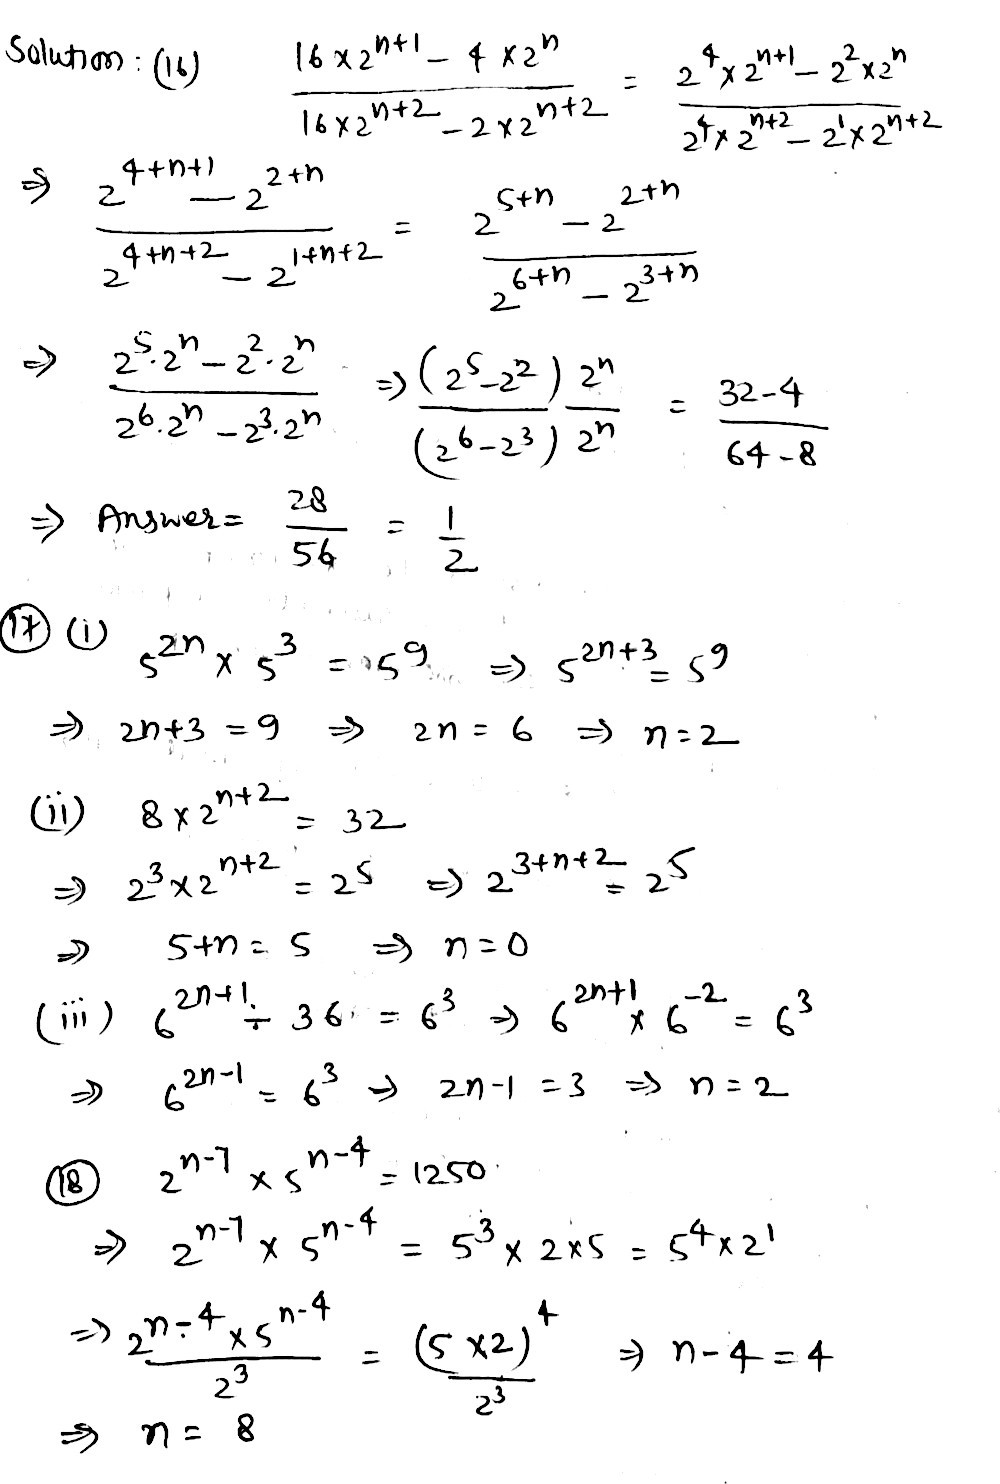 Solution: (16) (16×2^{n+1} - 4×2^n)/(16×2^{n+2} - 2×2^{n+2}) = (2^4×2^{n+1} - 2^2×2^n)/(2^4×2^{n+2} - 2^1×2^{n+2})
⇒ (2^{4+n+1} - 2^{2+n})/(2^{4+n+2} - 2^{1+n+2}) = (2^{5+n} - 2^{2+n})/(2^{6+n} - 2^{3+n})
⇒ (2^5·2^n - 2^2·2^n)/(2^6·2^n - 2^3·2^n) ⇒ (2^5-2^2)/(2^6-2^3) 2^n/2^n = (32-4)/(64-8)
⇒ Answer = 28/56 = 1/2
17 (i) 5^{2n} × 5^3 = 5^9 ⇒ 5^{2n+3} = 5^9
⇒ 2n+3 = 9 ⇒ 2n = 6 ⇒ n=2
(ii) 8×2^{n+2} = 32
⇒ 2^3×2^{n+2} = 2^5 ⇒ 2^{3+n+2} = 2^5
⇒ 5+n = 5 ⇒ n=0
(iii) 6^{2n+1} ÷ 36 = 6^3 ⇒ 6^{2n+1} × 6^{-2} = 6^3
⇒ 6^{2n-1} = 6^3 ⇒ 2n-1 = 3 ⇒ n=2
18 2^{n-7} × 5^{n-4} = 1250
⇒ 2^{n-7} × 5^{n-4} = 5^3 × 2×5 = 5^4×2^1
⇒ (2^{n-4} × 5^{n-4})/2^3 = (5×2)^4/2^3 ⇒ n-4 = 4
⇒ n = 8